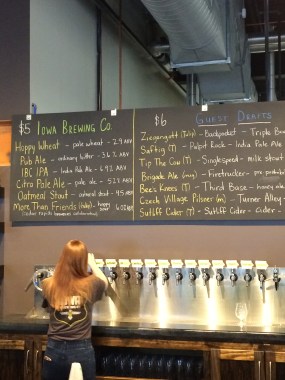 $5 IOWA BREWING CO.
Happy Wheat - pale wheat - 2.9 ABV
Pub Ale - ordinary bitter - 3.6% ABV
IBC IPA - India Pale Ale - 6.9% ABV
Citra Pale Ale - pale ale - 5.2% ABV
Oatmeal Stout - oatmeal stout - 4.5 ABV
More Than Friends
(cedar rapids collaboration)
$6 GUEST DRAFTS
- Backpocket - Triple
- Pulpit Rock - India Pale
Tip The Cow (T) - Singlespeed - milk stout
Brigade Ale - Firetrucker -
Bee's Knees (T) - Third Base - honey ale
Czech Village Pilsner (m) - Turner Alley -
Sutliff Cider (T) - Sutliff Cider - cider -